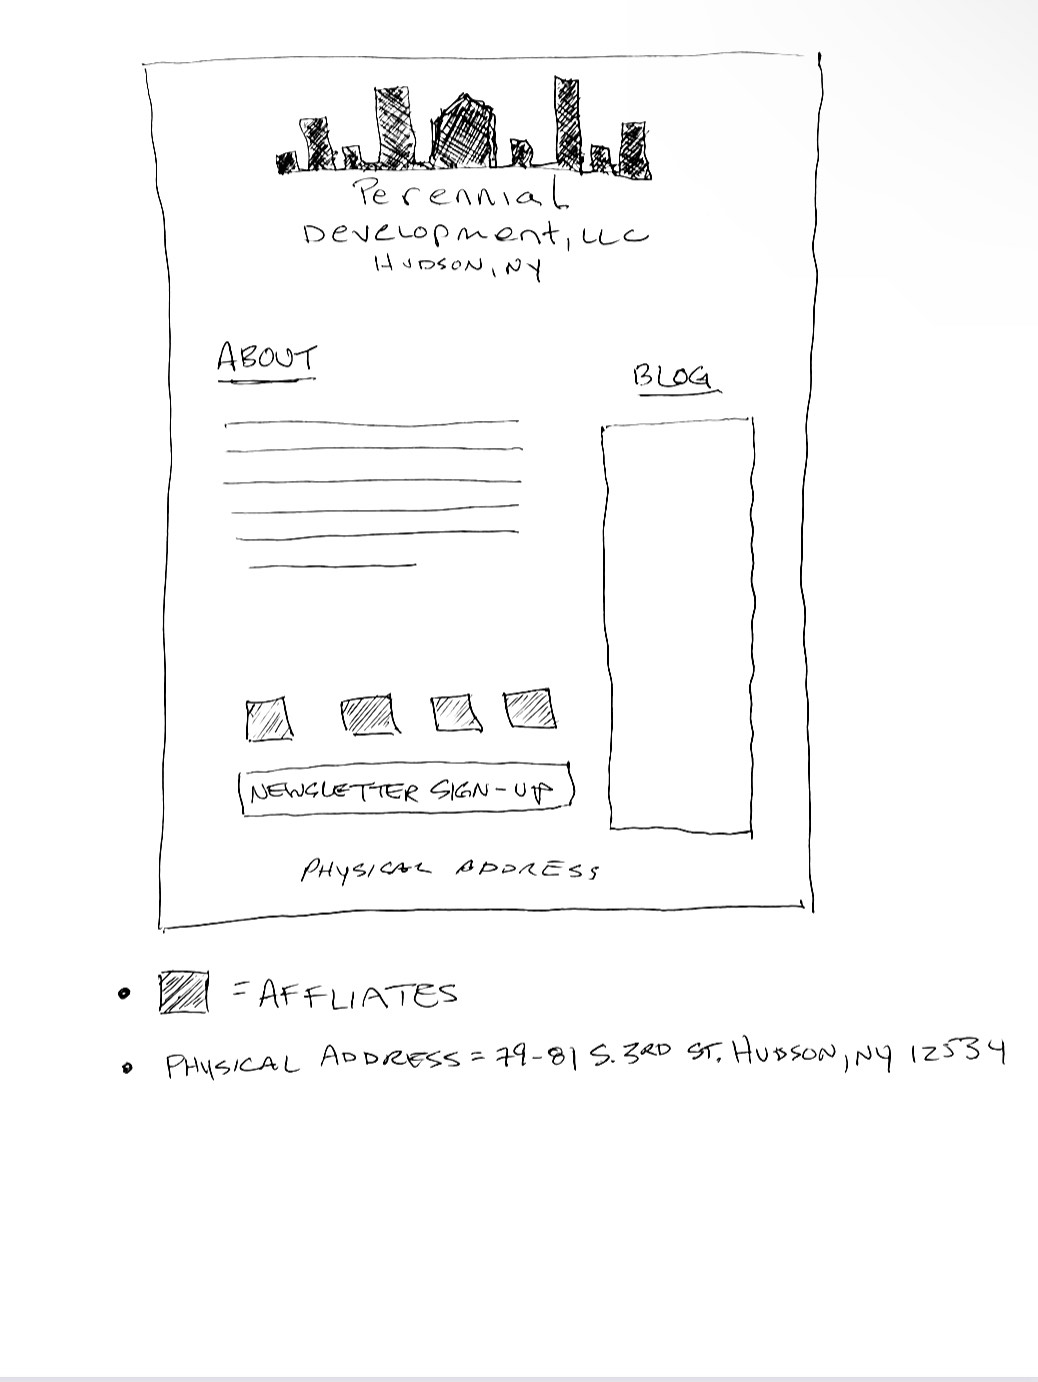 Perennial
Development, LLC
HUDSON, NY
ABOUT
BLOG
NEWSLETTER SIGN-UP
PHYSICAL ADDRESS
• = AFFLIATES
• PHYSICAL ADDRESS = 79-81 S. 3RD ST. HUDSON, NY 12534